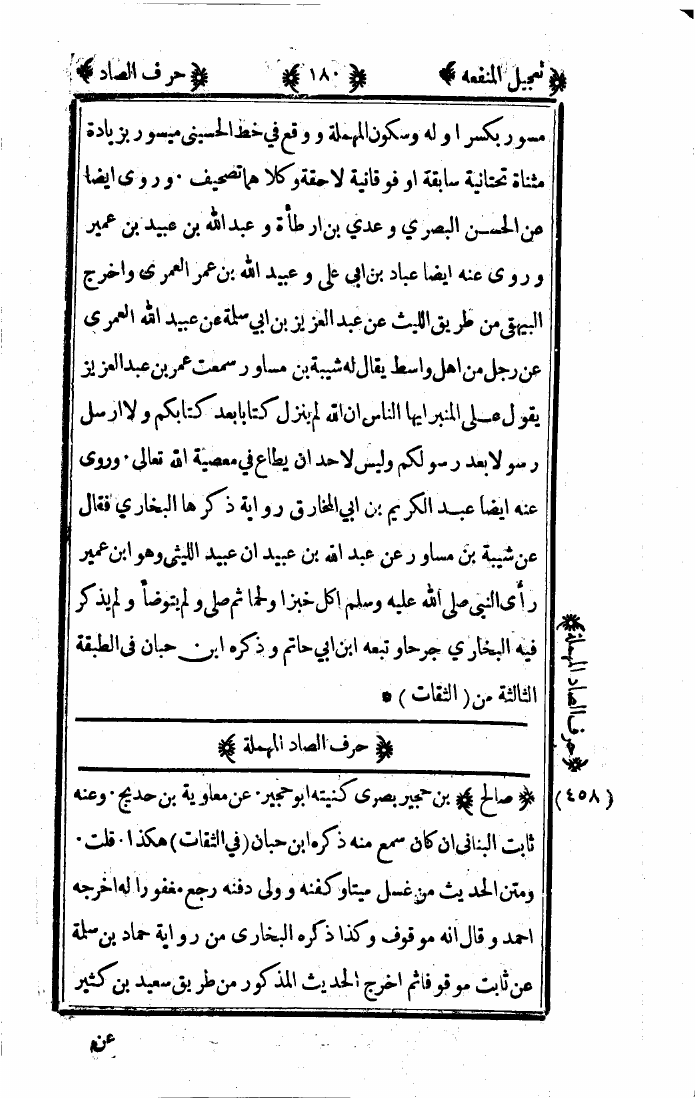 ﴿ تعجيل المنفعه ﴾ ﴿ ١٨٠ ﴾ ﴿ حرف الصاد ﴾
مسور بكسر اوله وسكون المهملة ووقع في خط الحسيني ميسور بزيادة
مثناة تحتانية سابقة او فوقانية لاحقة وكلاهما تصحيف . وروى ايضا
عن الحسن البصري وعدي بن ارطأة وعبد الله بن عبيد بن عمير
وروى عنه ايضا عباد بن ابي علي وعبيد الله بن عمر العمرى واخرج
البيهقي من طريق الليث عن عبد العزيز بن ابي سلمة عن عبيد الله العمرى
عن رجل من اهل واسط يقال له شيبة بن مساور سمعت عمر بن عبد العزيز
يقول على المنبر ايها الناس ان الله لم ينزل كتابا بعد كتابكم ولا ارسل
رسولا بعد رسولكم وليس لاحد ان يطاع في معصية الله تعالى . وروى
عنه ايضا عبد الكريم بن ابي المخارق رواية ذكرها البخاري فقال
عن شيبة بن مساور عن عبد الله بن عبيد ان عبيد الليثى وهو ابن عمير
رأى النبي صلى الله عليه وسلم اكل خبزا ولحما ثم صلى ولم يتوضأ ولم يذكر
فيه البخاري جرحا وتبعه ابن ابي حاتم وذكره ابن حبان في الطبقة
الثالثة من ( الثقات ) *
﴿ حرف الصاد المهملة ﴾
﴿ حرف الصاد المهملة ﴾
( ٤٥٨ ) ﴿ صالح ﴾ بن حجير بصرى كنيته ابو حجير . عن معاوية بن حديج . وعنه
ثابت البنانى ان كان سمع منه ذكره ابن حبان ( في الثقات ) هكذا . قلت .
ومتن الحديث من غسل ميتا وكفنه وولى دفنه رجع مغفورا له اخرجه
احمد وقال انه موقوف وكذا ذكره البخارى من رواية حماد بن سلمة
عن ثابت موقوفا ثم اخرج الحديث المذكور من طريق سعيد بن كثير
عن